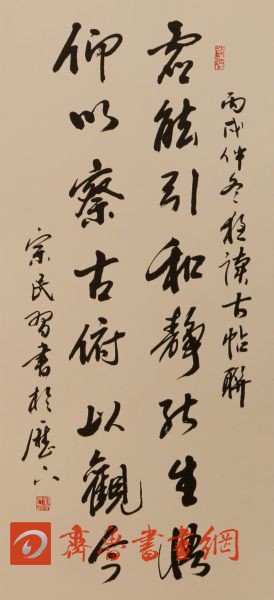 丙戌仲冬讀古帖聯
虛能引和靜能生悟
仰以察古俯以觀今
宗民習書於歷下
齊魯書畫網